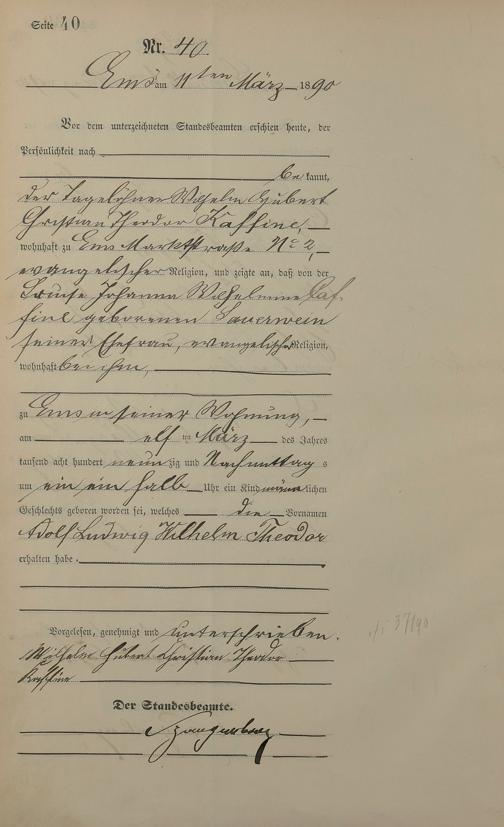 Seite 40
Nr. 40
Ems am 11ten März 1890
Vor dem unterzeichneten Standesbeamten erschien heute, der
Persönlichkeit nach
be kannt,
der Tagelöhner Wilhelm Hubert
Christian Theodor Kaffine,
wohnhaft zu Ems Marktstraße No 2,
evangelischer Religion, und zeigte an, daß von der
Louise Johanna Wilhelmine Kaf-
fine geborenen Sauerwein
seiner Ehefrau, evangelischer Religion,
wohnhaft bei ihm,
zu Ems in seiner Wohnung,
am elf ten März des Jahres
tausend acht hundert neun zig und Nachmittag s
um ein ein halb Uhr ein Kind männ lichen
Geschlechts geboren worden sei, welches die Vornamen
Adolf Ludwig Wilhelm Theodor
erhalten habe.
Vorgelesen, genehmigt und unterschrieben.
Wilhelm Hubert Christian Theodor
Kaffine
Der Standesbeamte.
Spangenberg
37/90